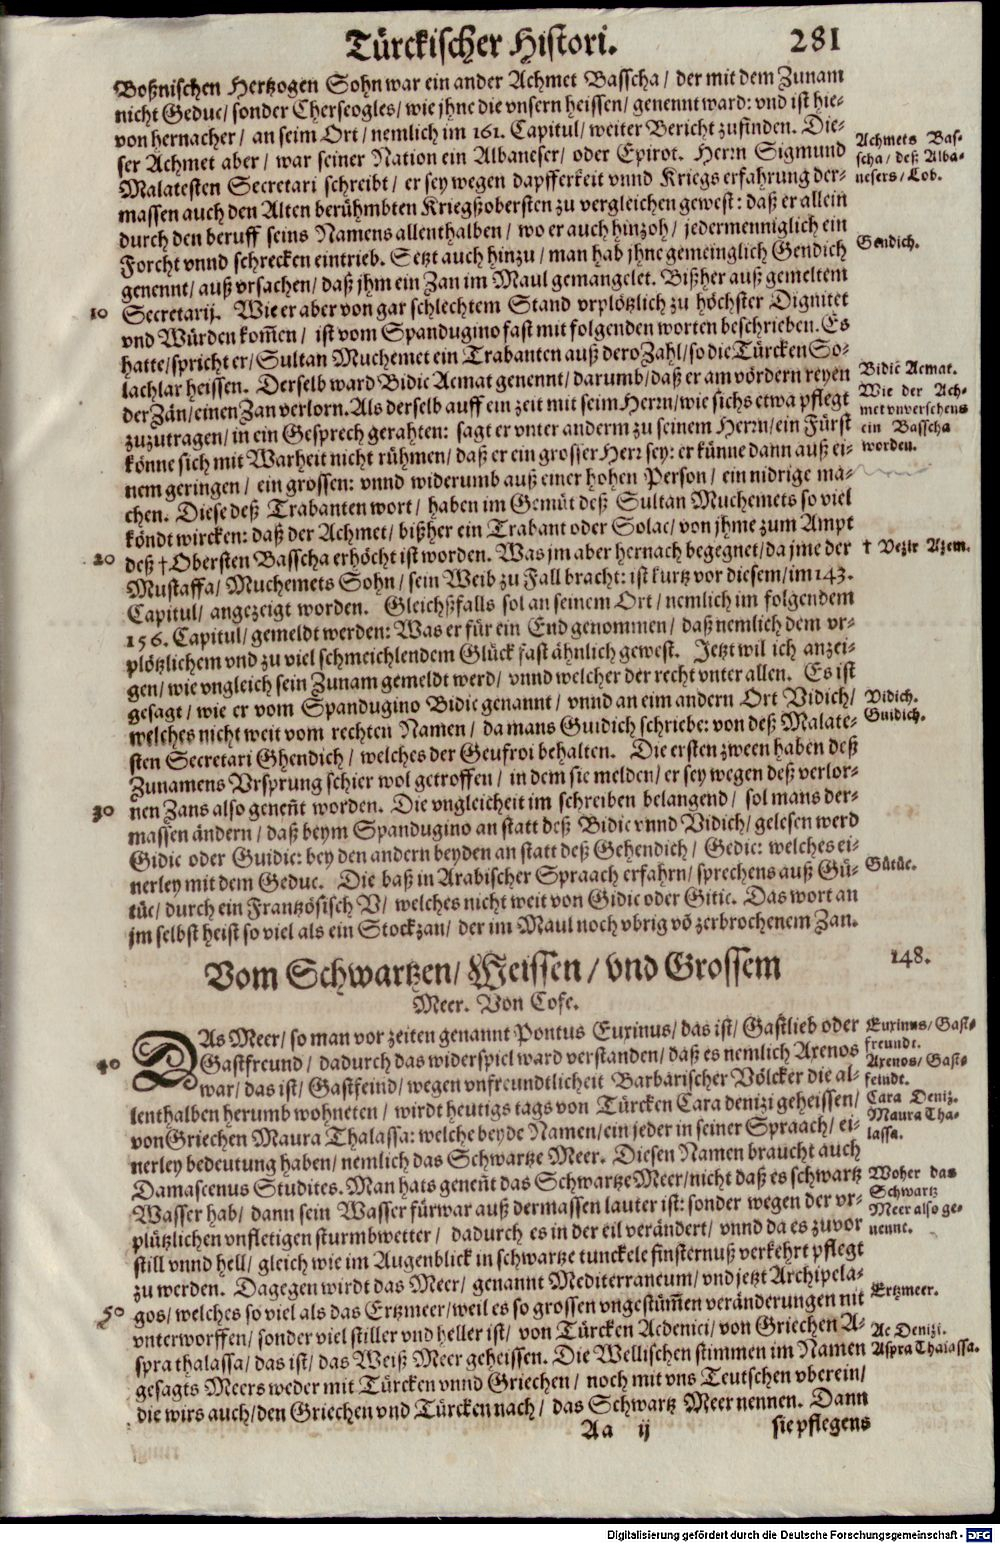 Türckischer Histori. 281
Boßnischen Hertzogen Sohn war ein ander Achmet Basscha / der mit dem Zunam
nicht Geduc / sonder Cherseogles / wie jhne die vnsern heissen / genennt ward: vnd ist hie-
von hernacher / an seim Ort / nemlich im 161. Capitul / weiter Bericht zufinden. Die-
ser Achmet aber / war seiner Nation ein Albaneser / oder Epirot. Herrn Sigmund
Malatesten Secretari schreibt / er sey wegen dapfferkeit vnnd Kriegserfahrung der-
massen auch den Alten berühmbten Kriegßobersten zu vergleichen gewest: daß er allein
durch den beruff seins Namens allenthalben / wo er auch hinzoh / jedermenniglich ein
Forcht vnnd schrecken eintrieb. Setzt auch hinzu / man hab jhne gemeinglich Gendich
genennt / auß vrsachen / daß jhm ein Zan im Maul gemangelet. Bißher auß gemeltem
10 Secretarij. Wie er aber von gar schlechtem Stand vrplötzlich zu höchster Dignitet
vnd Würden kom̃en / ist vom Spandugino fast mit folgenden worten beschrieben. Es
hatte / spricht er / Sultan Muchemet ein Trabanten auß dero Zahl / so die Türcken So-
lachlar heissen. Derselb ward Bidic Acmat genennt / darumb / daß er am vördern reyen
der Zän / einen Zan verlorn. Als derselb auff ein zeit mit seim Herrn / wie sichs etwa pflegt
zuzutragen / in ein Gesprech gerahten: sagt er vnter anderm zu seinem Herrn / ein Fürst
könne sich mit Warheit nicht rühmen / daß er ein grosser Herr sey: er künne dann auß ei-
nem geringen / ein grossen: vnnd widerumb auß einer hohen Person / ein nidrige ma-
chen. Diese deß Trabanten wort / haben im Gemüt deß Sultan Muchemets so viel
köndt wircken: daß der Achmet / bißher ein Trabant oder Solac / von jhme zum Ampt
20 deß † Obersten Basscha erhöcht ist worden. Was jm aber hernach begegnet / da jme der
Mustaffa / Muchemets Sohn / sein Weib zu Fall bracht: ist kurtz vor diesem / im 143.
Capitul / angezeigt worden. Gleichßfalls sol an seinem Ort / nemlich im folgendem
156. Capitul / gemeldt werden: Was er für ein End genommen / daß nemlich dem vr-
plötzlichem vnd zu viel schmeichlendem Glück fast ähnlich gewest. Jetzt wil ich anzei-
gen / wie vngleich sein Zunam gemeldt werd / vnnd welcher der recht vnter allen. Es ist
gesagt / wie er vom Spandugino Bidic genannt / vnnd an eim andern Ort Vidich /
welches nicht weit vom rechten Namen / da mans Guidich schriebe: von deß Malate-
sten Secretari Ghendich / welches der Geufroi behalten. Die ersten zween haben deß
Zunamens Vrsprung schier wol getroffen / in dem sie melden / er sey wegen deß verlor-
30 nen Zans also geneñt worden. Die vngleicheit im schreiben belangend / sol mans der-
massen ändern / daß beym Spandugino an statt deß Bidic vnnd Vidich / gelesen werd
Gidic oder Guidic: bey den andern beyden an statt deß Gehendich / Gedic: welches ei-
nerley mit dem Geduc. Die baß in Arabischer Spraach erfahrn / sprechens auß Gü-
tüc / durch ein Frantzösisch V / welches nicht weit von Gidic oder Gitic. Das wort an
jm selbst heist so viel als ein Stockzan / der im Maul noch vbrig võ zerbrochenem Zan.
Achmets Bas-
scha / deß Alba-
nesers / Lob.
Gendich.
Bidic Acmat.
Wie der Ach-
met vnversehens
ein Basscha
worden.
† Vezir Azem.
Vidich.
Guidich.
Gütüc.
Vom Schwartzen / Weissen / vnd Grossem 148.
Meer. Von Cofe.
DAs Meer / so man vor zeiten genannt Pontus Euxinus / das ist / Gastlieb oder
40 Gastfreund / dadurch das widerspiel ward verstanden / daß es nemlich Axenos
war / das ist / Gastfeind / wegen vnfreundtlicheit Barbarischer Völcker die al-
lenthalben herumb wohneten / wirdt heutigs tags von Türcken Cara denizi geheissen /
von Griechen Maura Thalassa: welche beyde Namen / ein jeder in seiner Spraach / ei-
nerley bedeutung haben / nemlich das Schwartze Meer. Diesen Namen braucht auch
Damascenus Studites. Man hats geneñt das Schwartze Meer / nicht daß es schwartz
Wasser hab / dann sein Wasser fürwar auß dermassen lauter ist: sonder wegen der vr-
plützlichen vnfletigen sturmbwetter / dadurch es in der eil verändert / vnnd da es zuvor
still vnnd hell / gleich wie im Augenblick in schwartze tunckele finsternuß verkehrt pflegt
zu werden. Dagegen wirdt das Meer / genannt Mediterraneum / vnd jetzt Archipela-
50 gos / welches so viel als das Ertzmeer / weil es so grossen vngestüm̃en veränderungen nit
vnterworffen / sonder viel stiller vnd heller ist / von Türcken Acdenici / von Griechen A-
spra thalassa / das ist / das Weiß Meer geheissen. Die Wellischen stimmen im Namen
gesagts Meers weder mit Türcken vnnd Griechen / noch mit vns Teutschen vberein /
die wirs auch / den Griechen vnd Türcken nach / das Schwartz Meer nennen. Dann
Euxinus / Gast-
freundt.
Axenos / Gast-
feindt.
Cara Deniz.
Maura Tha-
lassa.
Woher das
Schwartz
Meer also ge-
nennt.
Ertzmeer.
Ac Denizi.
Aspra Thalassa.
Aa ij sie pflegens
Digitalisierung gefördert durch die Deutsche Forschungsgemeinschaft - DFG